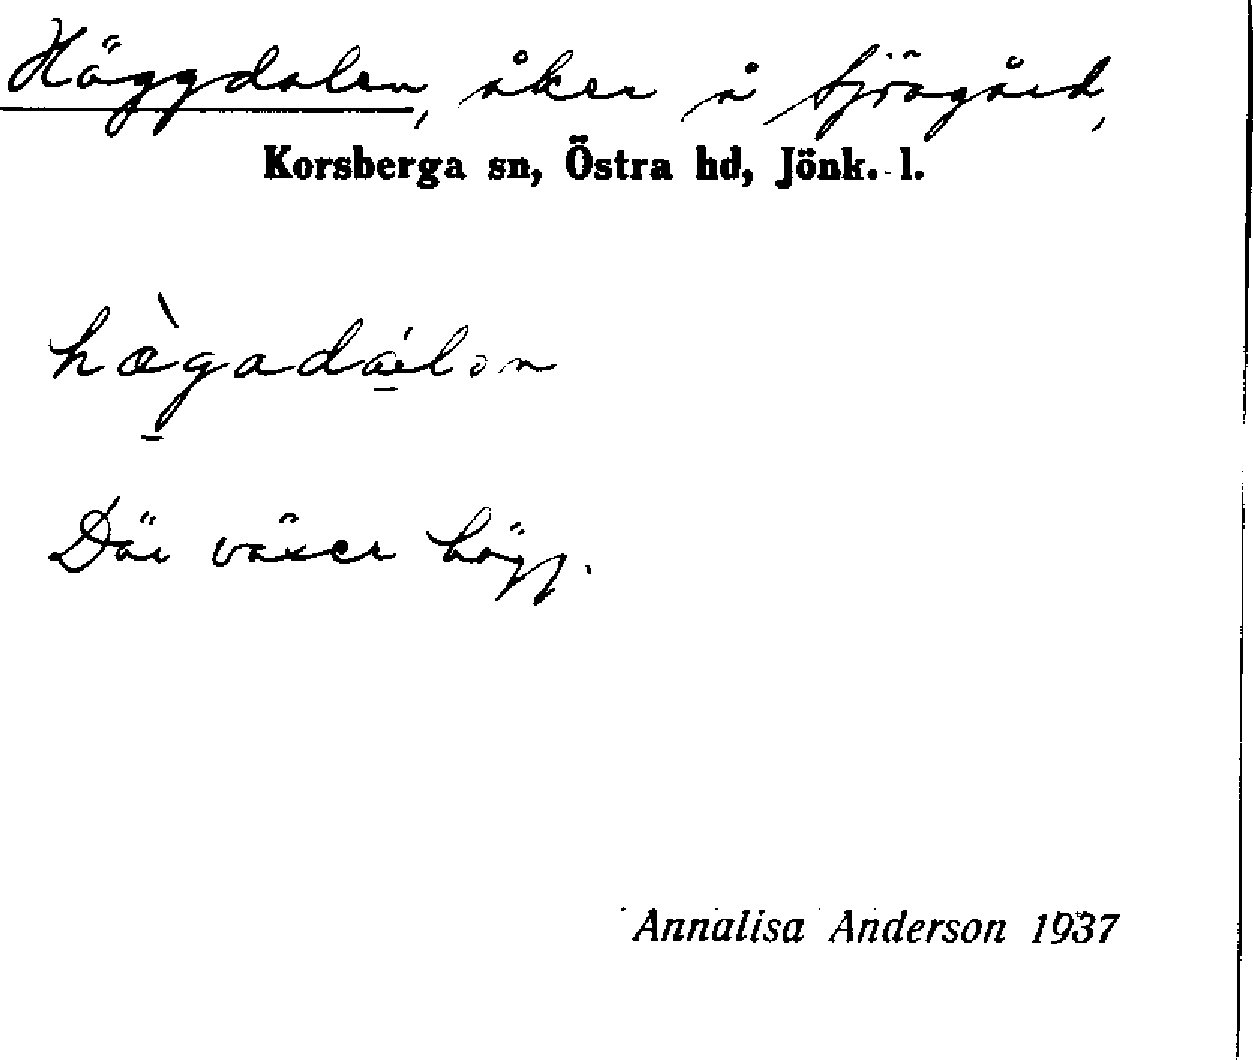 Häggdalen, åker å Sjögård,
Korsberga sn, Östra hd, Jönk. l.
hægadálən
Där växer hägg.
Annalisa Anderson 1937